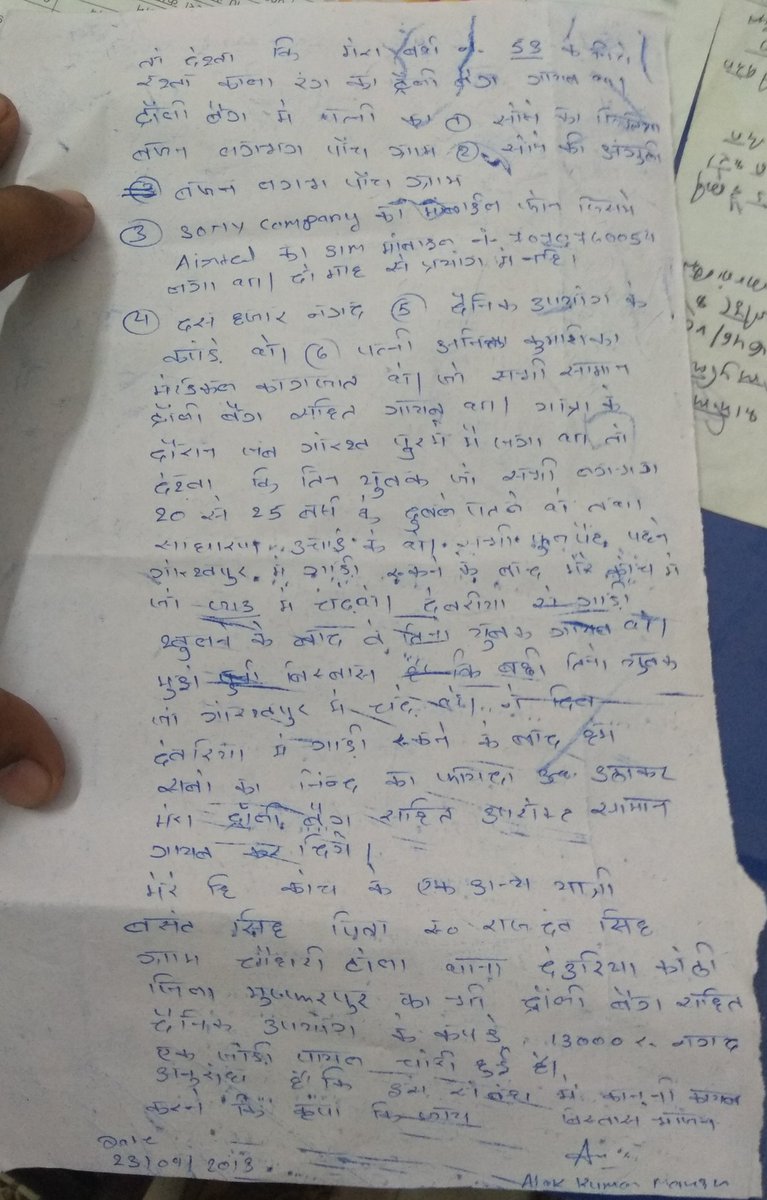 तो देखा कि मेरा बर्थ नं. 53 के नीचे
रखा काला रंग का ट्रॉली बैग गायब था।
ट्रॉली बैग में पत्नी का ① सोने का
वजन लगभग पाँच ग्राम ② सोने की अंगुठी
वजन लगभग पाँच ग्राम
③ SONY Company का मोबाईल फोन जिसमे
Airtel का SIM मोबाइल नं-
लगा था। दो माह से प्रयोग में नहि।
④ दस हजार नगद ⑤ दैनिक उपयोग के
कपड़े थे। ⑥ पत्नी अनिता कुमारी का
मेडिकल कागजात थे। जो सभी सामान
ट्रॉली बैग सहित गायब था। यात्रा के
दौरान जब गोरखपुर में मै जगा था तो
देखा कि तिन युवक जो सभी लगभग
20 से 25 वर्ष के दुबले पतले थे तथा
साधारण उचाई के थे। सभी फुल पैंट पहने
गोरखपुर में गाड़ी रूकने के बाद मेरे कोच में
जो बाद में चढ़े थे। देवरीया से गाड़ी
खुलने के बाद वे तिनो युवक गायब थे।
मुझे विस्वास है कि वही तिनो युवक
जो गोरखपुर में चढ़े थे।
देवरिया में गाड़ी रूकने के बाद हम
सबो का निन्द का फायदा उठाकर
मेरा ट्रॉली बैग सहित उपरोक्त सामान
गायब कर दिये।
मेरे हि कोच के एक अन्य यात्री
बसंत सिंह पिता स्व० राजदेव सिंह
ग्राम चौधरी टोला थाना देवरिया कोठी
जिला मुजफ्फरपुर का भी ट्रॉली बैग सहित
दैनिक उपयोग के कपड़े, 13000 रू नगद
एक जोड़ी पायल चोरी हुई है।
अनुरोध है कि इस संबंध में कानूनी
करने कि कृपा कि जाय विस्वास भाजन
Date
23/09/2013
Alok Kumar